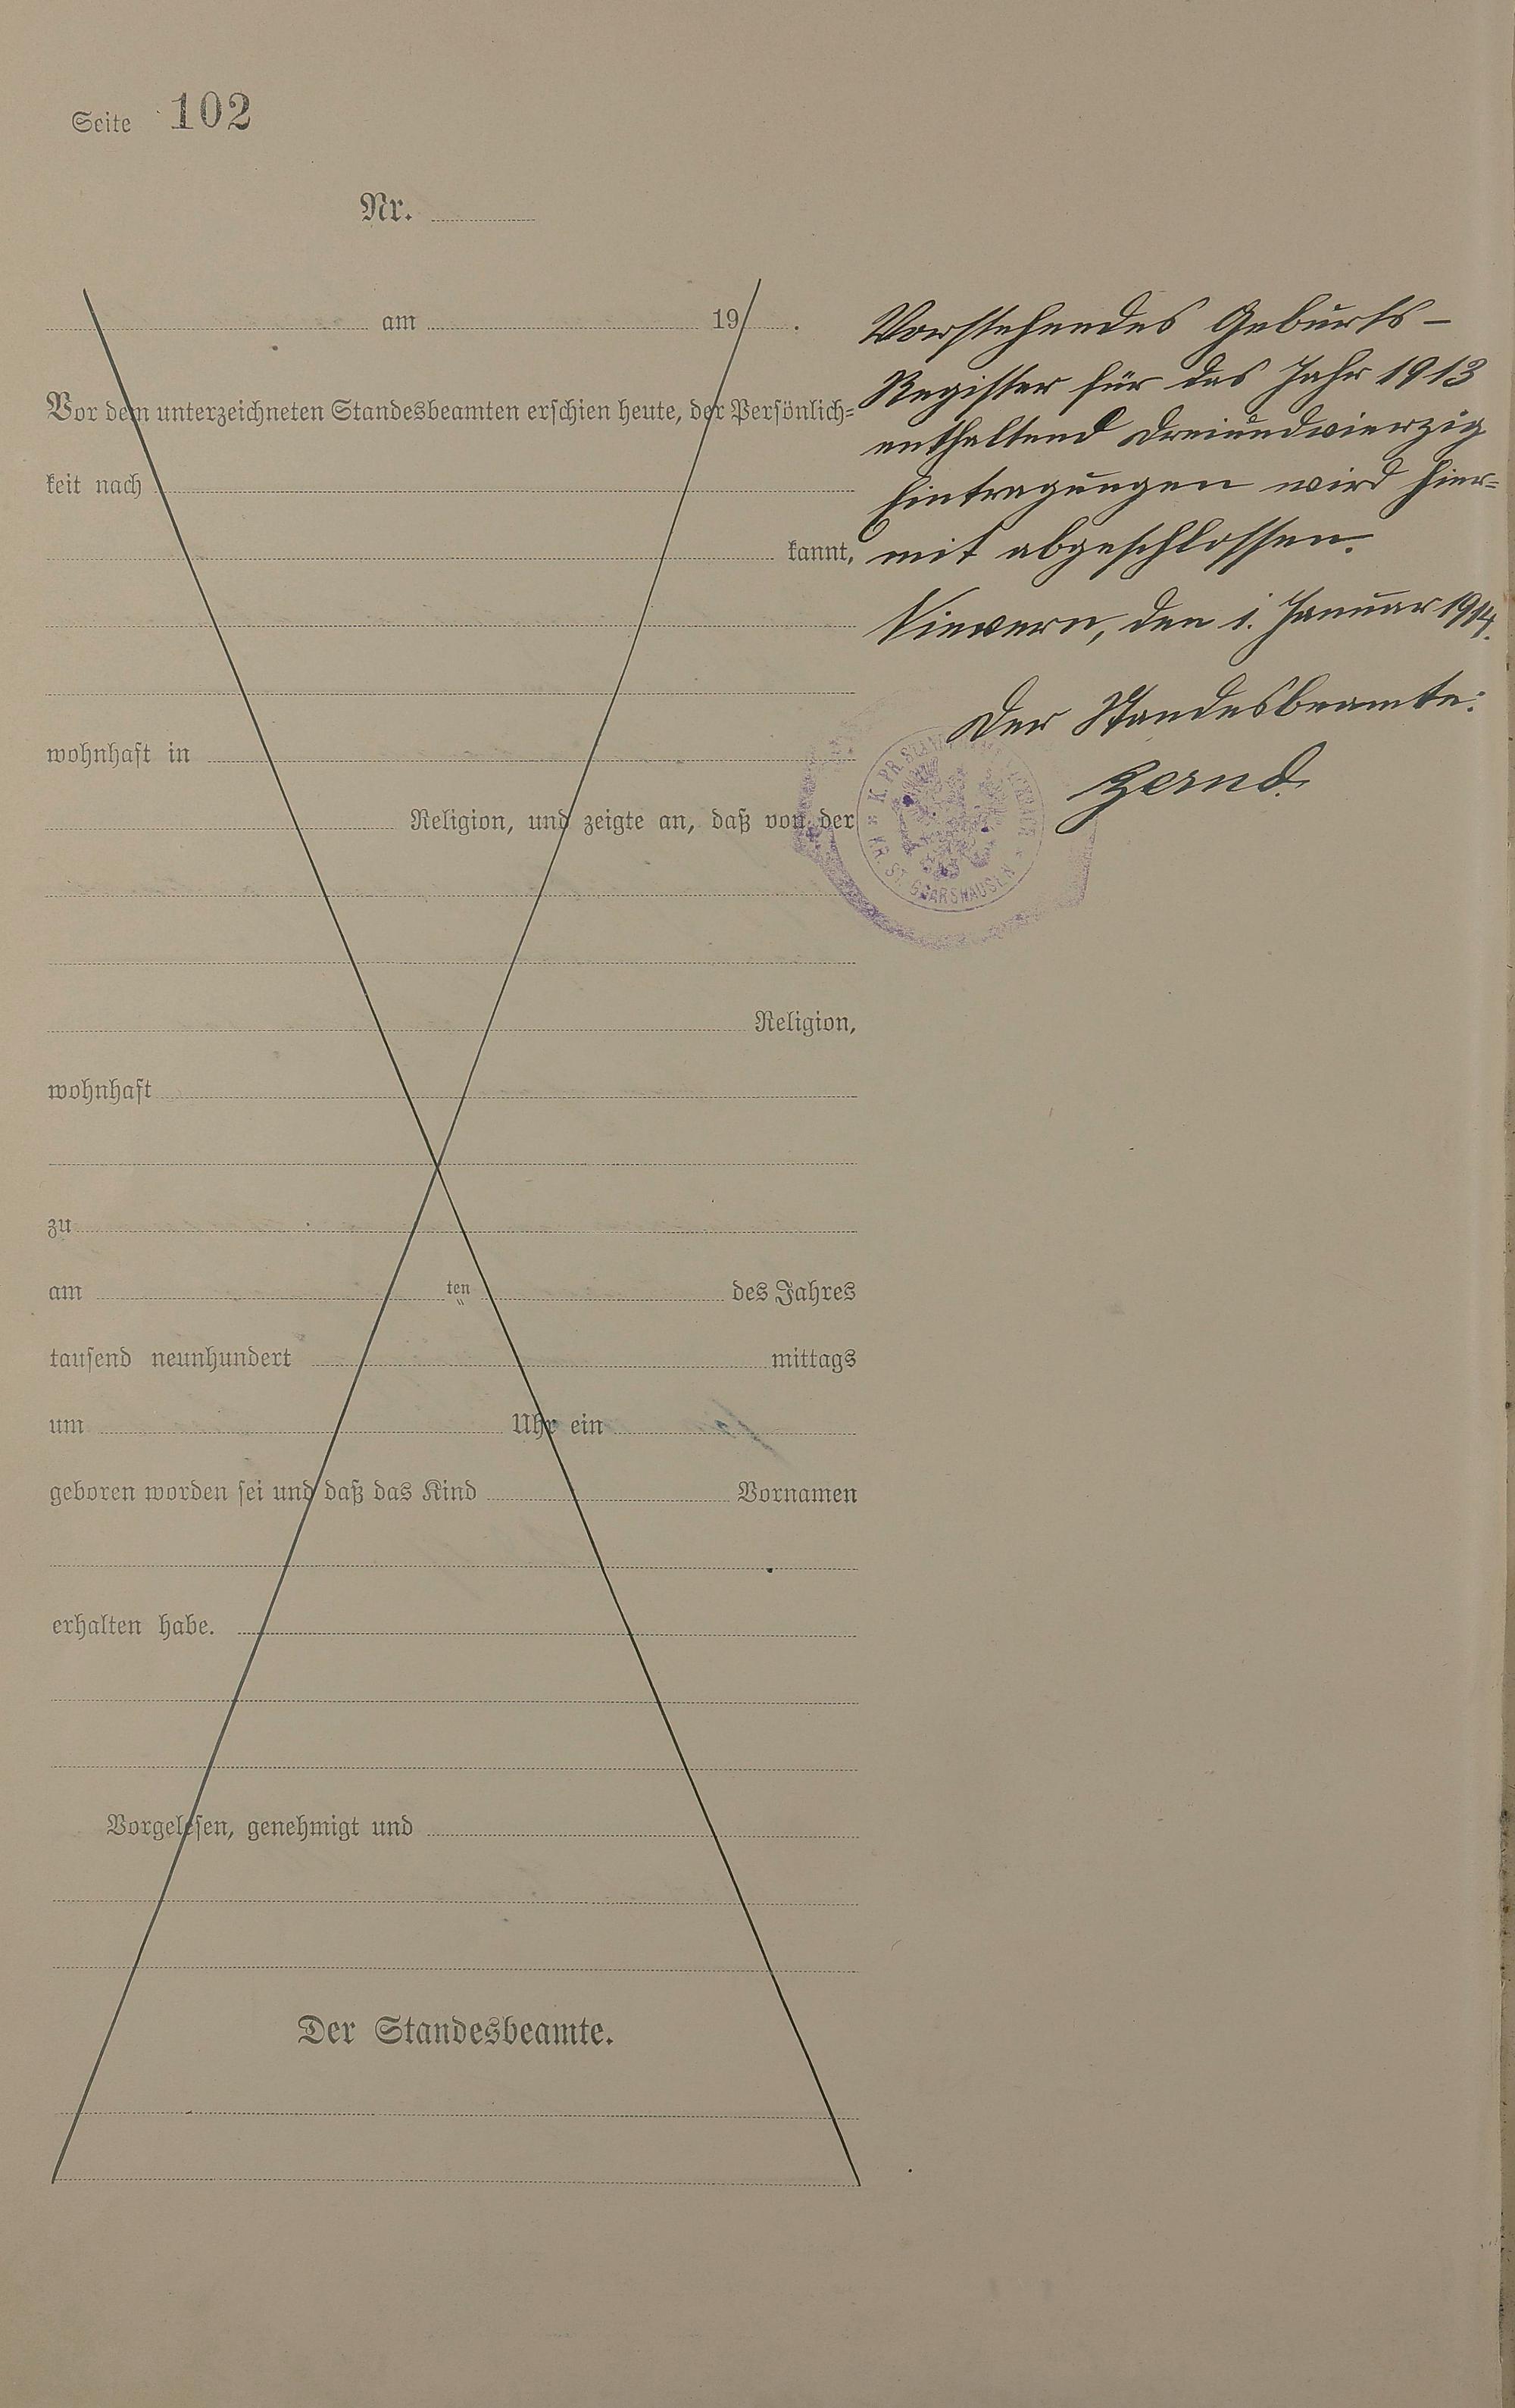 Seite 102
Nr.
am 19 .
Vor dem unterzeichneten Standesbeamten erschien heute, der Persönlich=
keit nach
kannt,
wohnhaft in
Religion, und zeigte an, daß von der
Religion,
wohnhaft
zu
am ten des Jahres
tausend neunhundert mittags
um Uhr ein
geboren worden sei und daß das Kind Vornamen
erhalten habe.
Vorgelesen, genehmigt und
Der Standesbeamte.
Vorstehendes Geburts-
Register für das Jahr 1913
enthaltend dreiundvierzig
Eintragungen wird hier=
mit abgeschlossen.
Nievern, den 1. Januar 1914.
Der Standesbeamte:
K. PR. KR. ST. GOARSHAUSEN